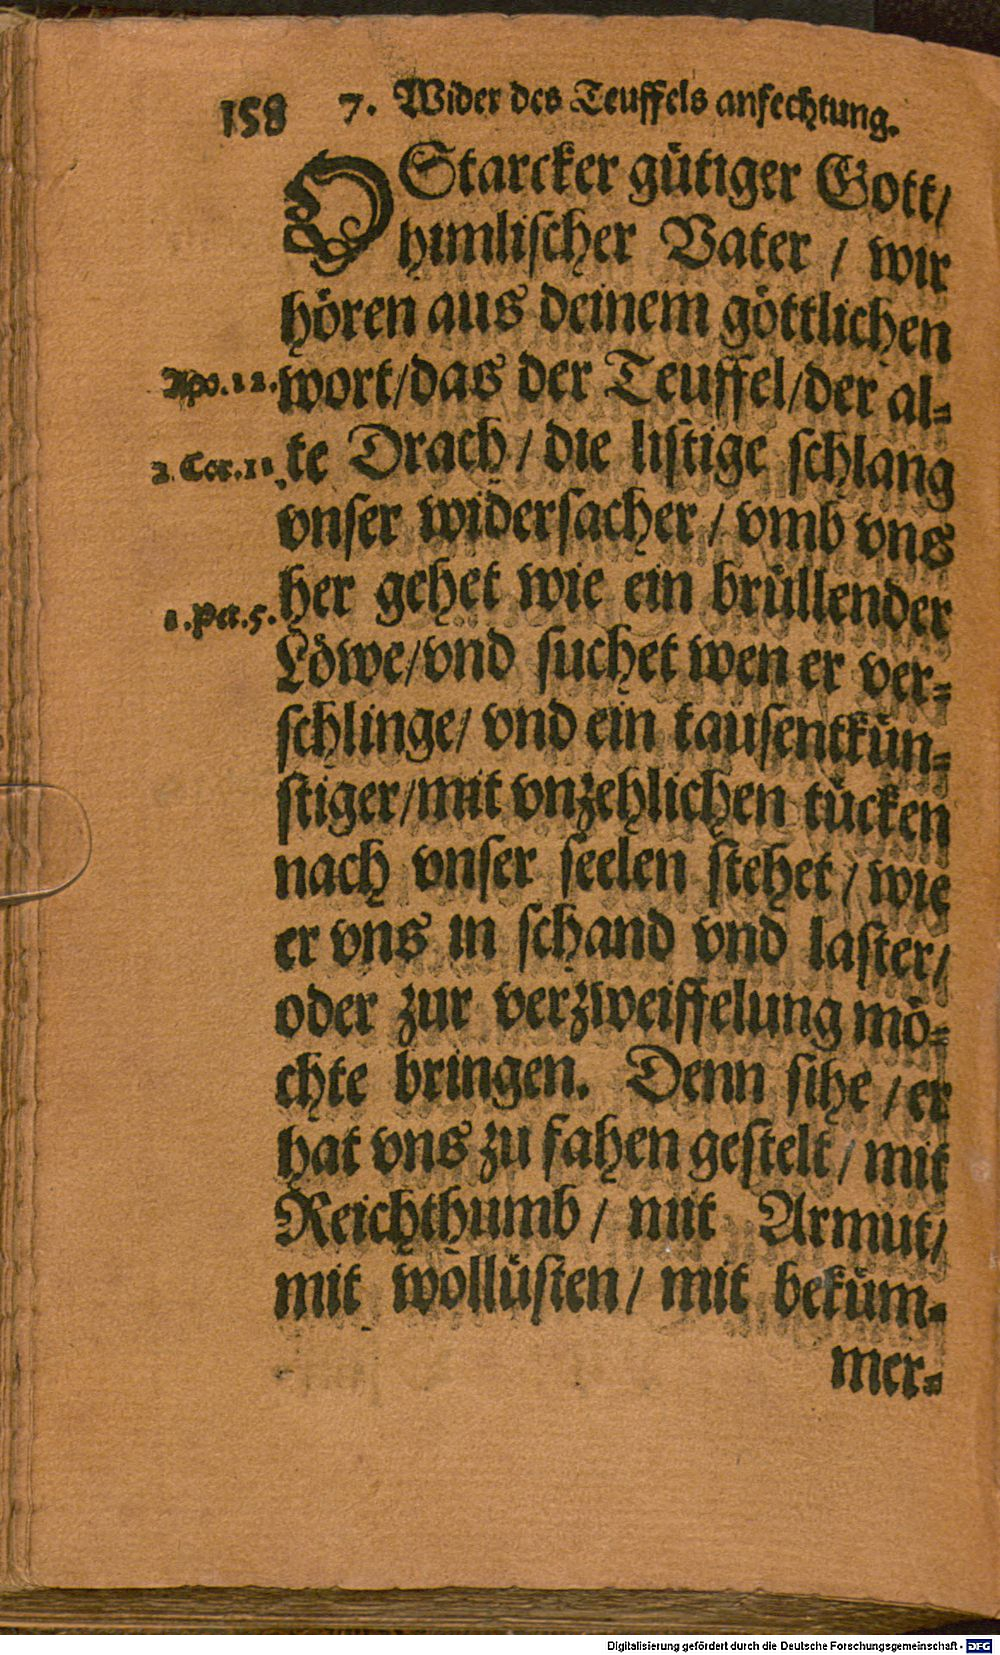 158 7. Wider des Teuffels anfechtung.
O Starcker gütiger Gott/
himlischer Vater / wir
hören aus deinem göttlichen
Apo. 12. wort/das der Teuffel/der al-
2. Cor. 11. te Drach / die listige schlang
vnser widersacher / vmb vns
her gehet wie ein brüllender
1. Pet. 5. Löwe/vnd suchet wen er ver-
schlinge/ vnd ein tausentkün-
stiger/mit vnzehlichen tücken
nach vnser seelen stehet / wie
er vns in schand vnd laster/
oder zur verzweiffelung mö-
chte bringen. Denn sihe / er
hat vns zu fahen gestelt / mit
Reichthumb / mit Armut/
mit wöllüsten / mit beküm-
mer-
Digitalisierung gefördert durch die Deutsche Forschungsgemeinschaft - DFG